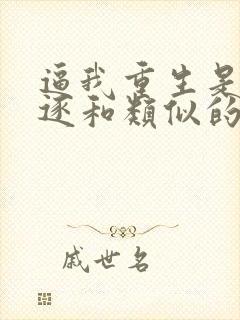 逼我重生是
逐和類似的
戚世名